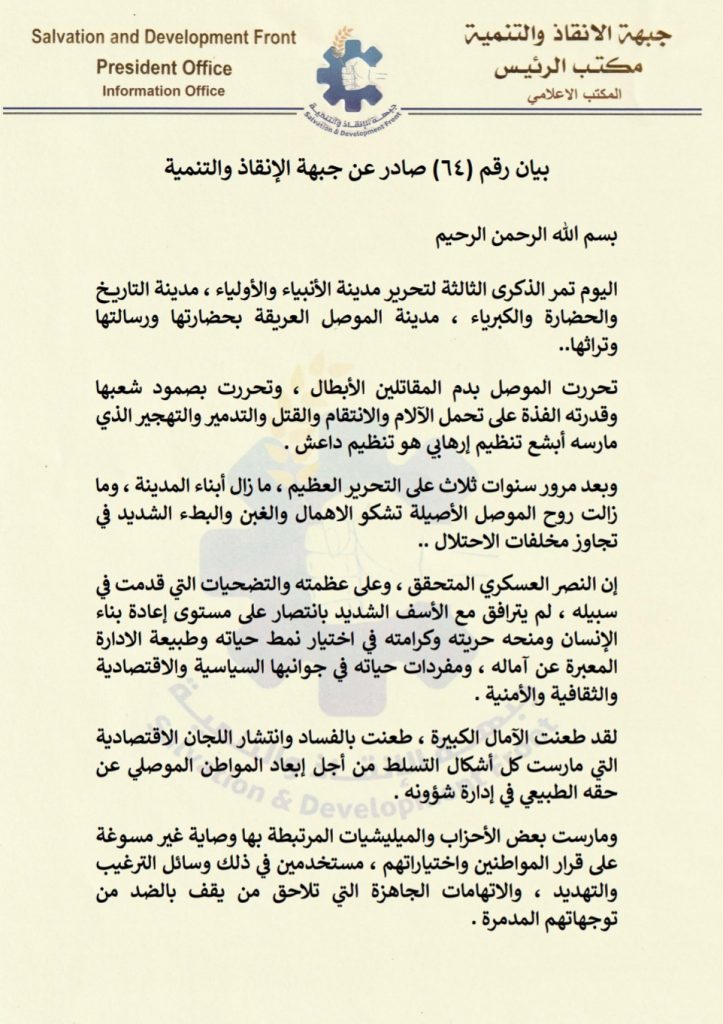 Salvation and Development Front
President Office
Information Office
جبهة الانقاذ والتنمية
مكتب الرئيس
المكتب الاعلامي
جبهة الإنقاذ والتنمية
Salvation & Development Front
بيان رقم (٦٤) صادر عن جبهة الإنقاذ والتنمية
بسم الله الرحمن الرحيم
اليوم تمر الذكرى الثالثة لتحرير مدينة الأنبياء والأولياء ، مدينة التاريخ
والحضارة والكبرياء ، مدينة الموصل العريقة بحضارتها ورسالتها
وتراثها..
تحررت الموصل بدم المقاتلين الأبطال ، وتحررت بصمود شعبها
وقدرته الفذة على تحمل الآلام والانتقام والقتل والتدمير والتهجير الذي
مارسه أبشع تنظيم إرهابي هو تنظيم داعش .
وبعد مرور سنوات ثلاث على التحرير العظيم ، ما زال أبناء المدينة ، وما
زالت روح الموصل الأصيلة تشكو الاهمال والغبن والبطء الشديد في
تجاوز مخلفات الاحتلال ..
إن النصر العسكري المتحقق ، وعلى عظمته والتضحيات التي قدمت في
سبيله ، لم يترافق مع الأسف الشديد بانتصار على مستوى إعادة بناء
الإنسان ومنحه حريته وكرامته في اختيار نمط حياته وطبيعة الادارة
المعبرة عن آماله ، ومفردات حياته في جوانبها السياسية والاقتصادية
والثقافية والأمنية .
لقد طعنت الآمال الكبيرة ، طعنت بالفساد وانتشار اللجان الاقتصادية
التي مارست كل أشكال التسلط من أجل إبعاد المواطن الموصلي عن
حقه الطبيعي في إدارة شؤونه .
ومارست بعض الأحزاب والميليشيات المرتبطة بها وصاية غير مسوغة
على قرار المواطنين واختياراتهم ، مستخدمين في ذلك وسائل الترغيب
والتهديد ، والاتهامات الجاهزة التي تلاحق من يقف بالضد من
توجهاتهم المدمرة .
جبهة الإنقاذ والتنمية
Salvation & Development Front